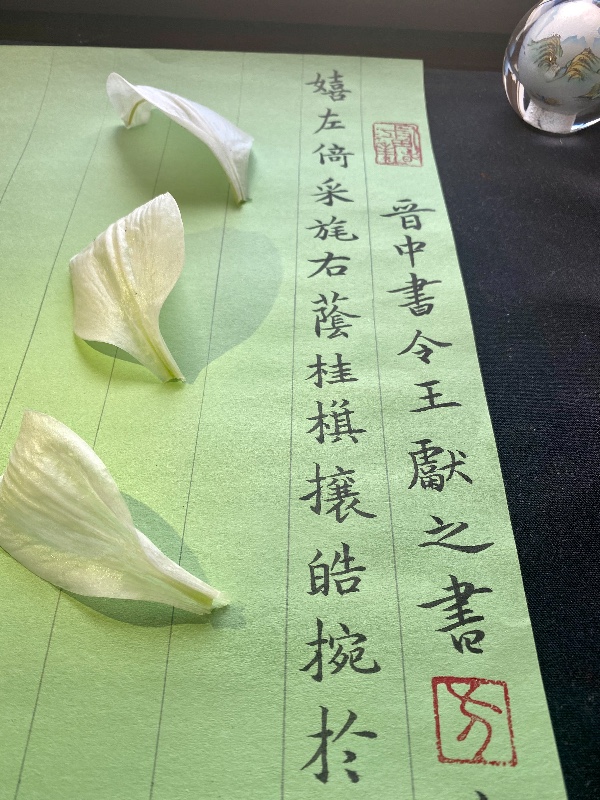 晉中書令王獻之書
嬉左倚采旄右蔭桂旗攘皓捥於